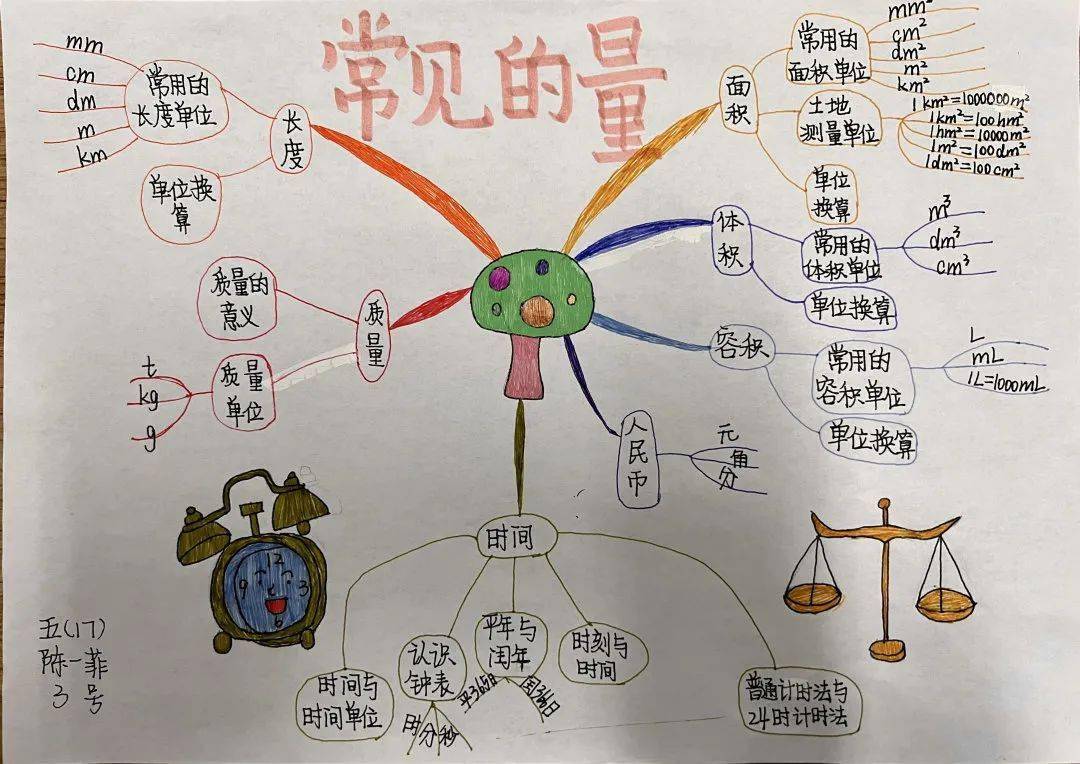 常见的量
mm
cm
dm
m
km
常用的
长度单位
长度
单位换
算
质量的
意义
质量
质量
单位
t
kg
g
面积
常用的
面积单位
mm²
cm²
dm²
m²
km²
土地
测量单位
1km²=1000000m²
1km²=100hm²
1hm²=10000m²
1m²=100dm²
1dm²=100cm²
单位
换算
体积
常用的
体积单位
m³
dm³
cm³
单位换算
容积
常用的
容积单位
L
mL
1L=1000mL
单位换算
人民币
元
角
分
时间
时间与
时间单位
认识
钟表
时分秒
平年与
闰年
平365日
闰366日
时刻与
时间
普通计时法与
24时计时法
12
9
3
6
五(17)
陈一菲
3号